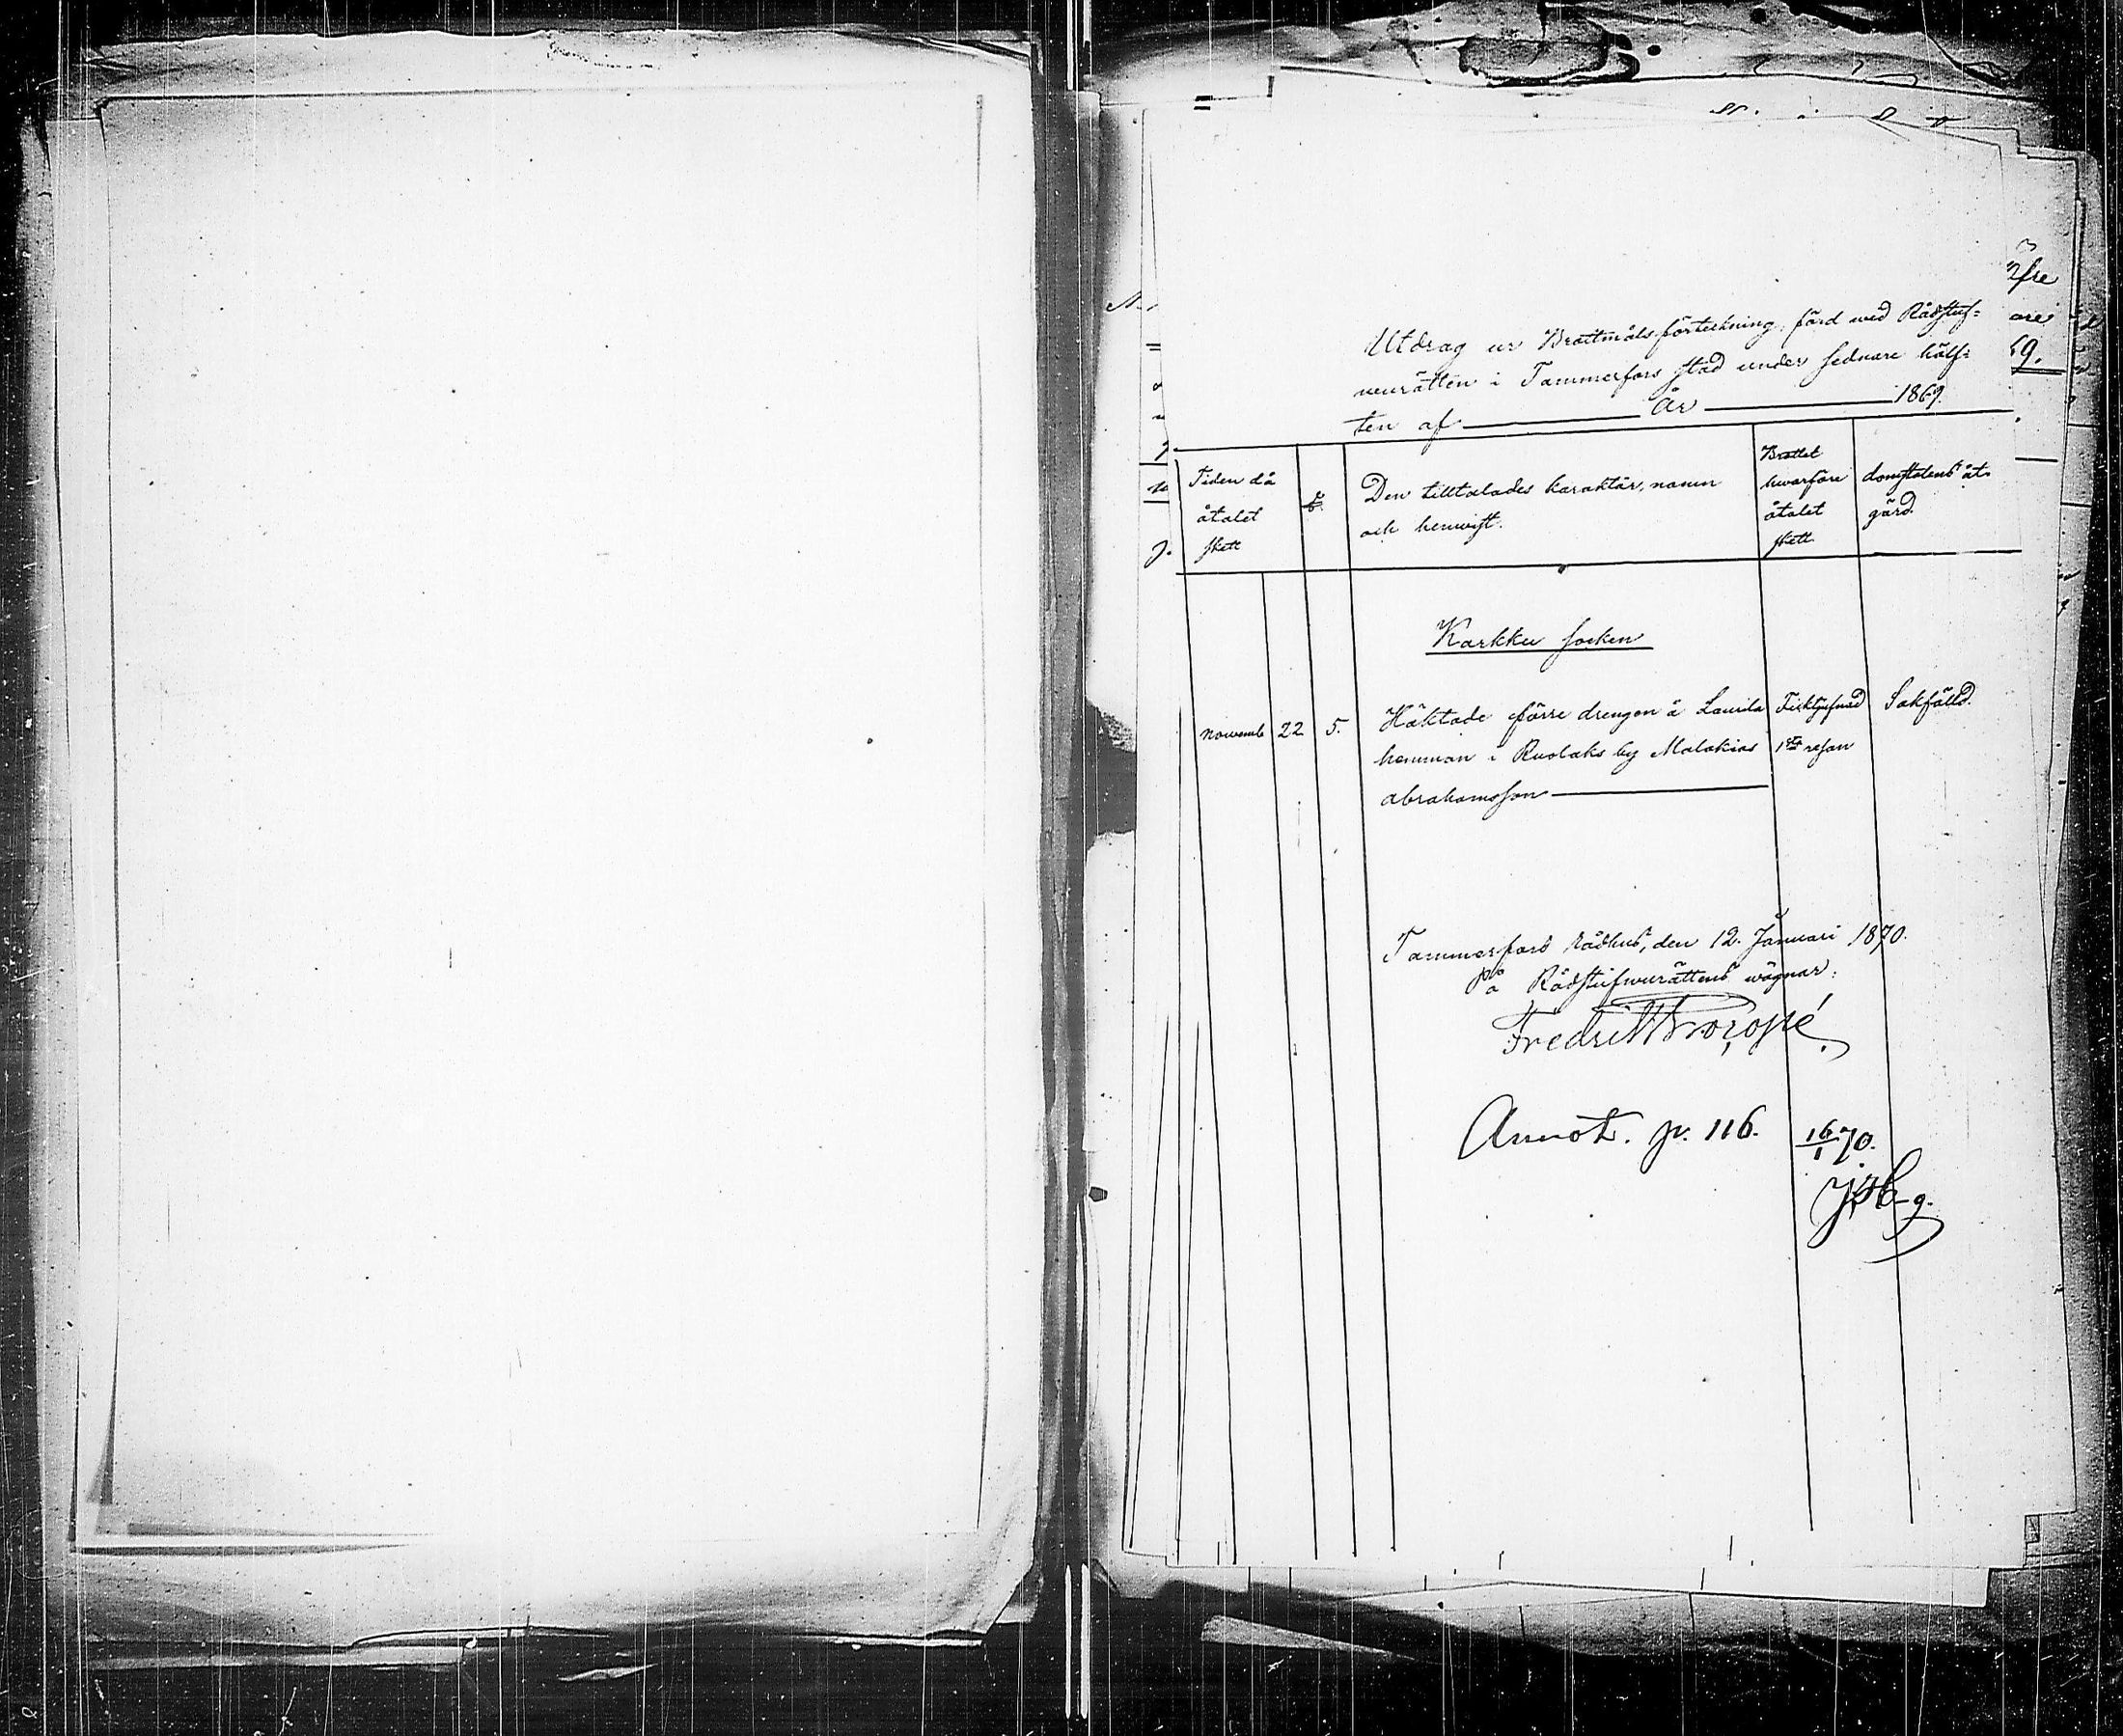 Utdrag ur Brottmålsförteckning, förd wid Rådstuf-
wurätten i Tammerfors stad under sednare hälf-
ten af År 1869.
Tiden då
åtalet
skett
§.
Den tilltalades karaktär, namn
och hemvist.
Brottet
hwarföre
åtalet
skett
domstolens åt-
gärd.
Karkku socken
Novemb 22 5. Häktade förre drengen å Laurila Tjufnad Sakfälld.
hemman i Ruolaks by Malakias 1sta resan
Abrahamsson
Tammerfors Rådhus, den 12. Januari 1870.
På Rådstufwurättens wägnar:
Fredrik Procopé
Annot. p. 116. 16/1 70.